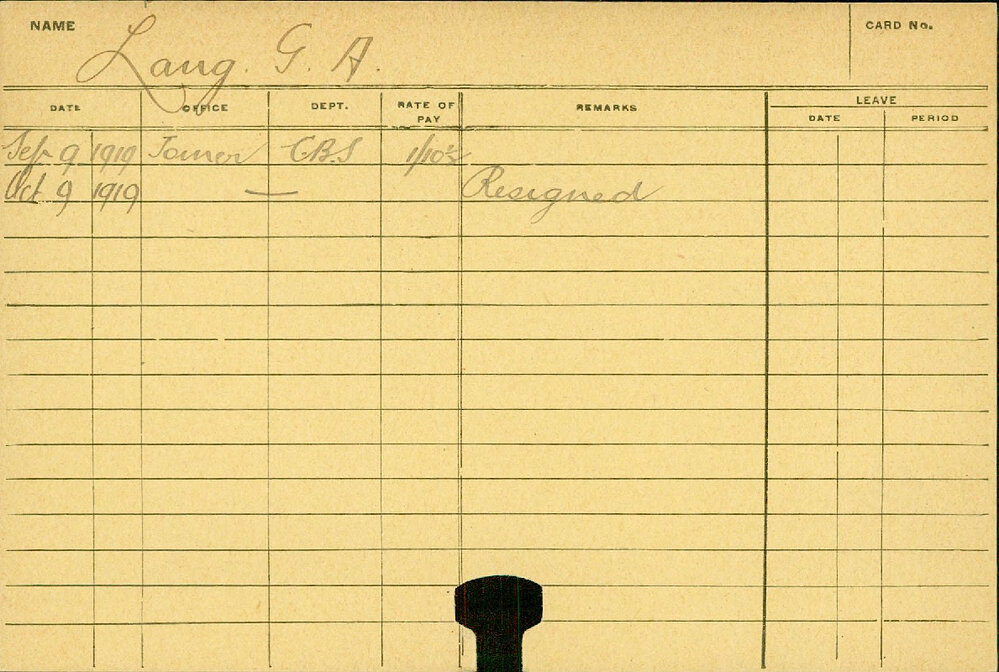 NAME Lang. G. A. CARD No.
DATE OFFICE DEPT. RATE OF PAY REMARKS LEAVE
DATE PERIOD
Sep 9 1919 Joiner C.B.S 1/10½
Oct 9 1919 — Resigned